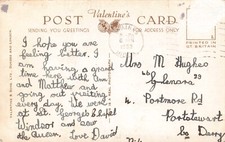 Valentine's
POST CARD
SENDING YOU GREETINGS
FOR ADDRESS ONLY
PRINTED IN
GT. BRITAIN
I hope you are
feeling better. I
am having a grand
time here with Ann
and Matthew and
going out visiting
every day. We went
at St. George's Chapel
Windsor and saw
the Queen. Love David
Mrs M Hughes
"Glenara"
4, Portmore Rd
Portstewart
Co Derry